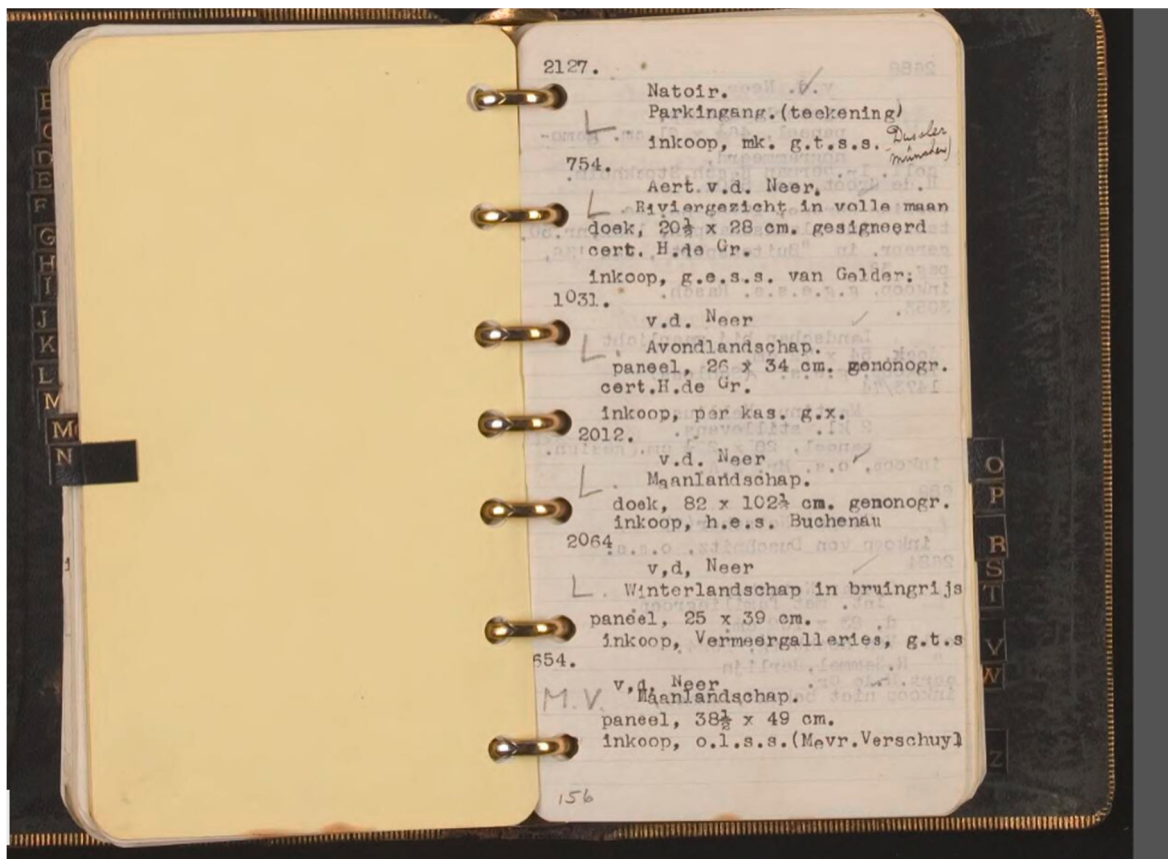 2127.
Natoir.
Parkingang.(teekening)
L
inkoop, mk. g.t.s.s.
München)
754.
Aert v.d. Neer.
L. Riviergezicht in volle maan
doek, 20½ x 28 cm. gesigneerd
cert. H.de Gr.
inkoop, g.e.s.s. van Gelder.
1031.
v.d. Neer
L. Avondlandschap.
paneel, 26 x 34 cm. gemonogr.
cert.H.de Gr.
inkoop, per kas. g.x.
2012.
v.d. Neer
L. Maanlandschap.
doek, 82 x 102½ cm. gemonogr.
inkoop, h.e.s. Buchenau
2064.
v,d, Neer
L. Winterlandschap in bruingrijs
paneel, 25 x 39 cm.
inkoop, Vermeergalleries, g.t.s
654.
v,d, Neer
M.V. Maanlandschap.
paneel, 38½ x 49 cm.
inkoop, o.l.s.s.(Mevr.Verschuyl
156
B
C
D
E
F
G
H
I
J
K
L
M
Mc
N
O
P
R
S
T
V
W
Z